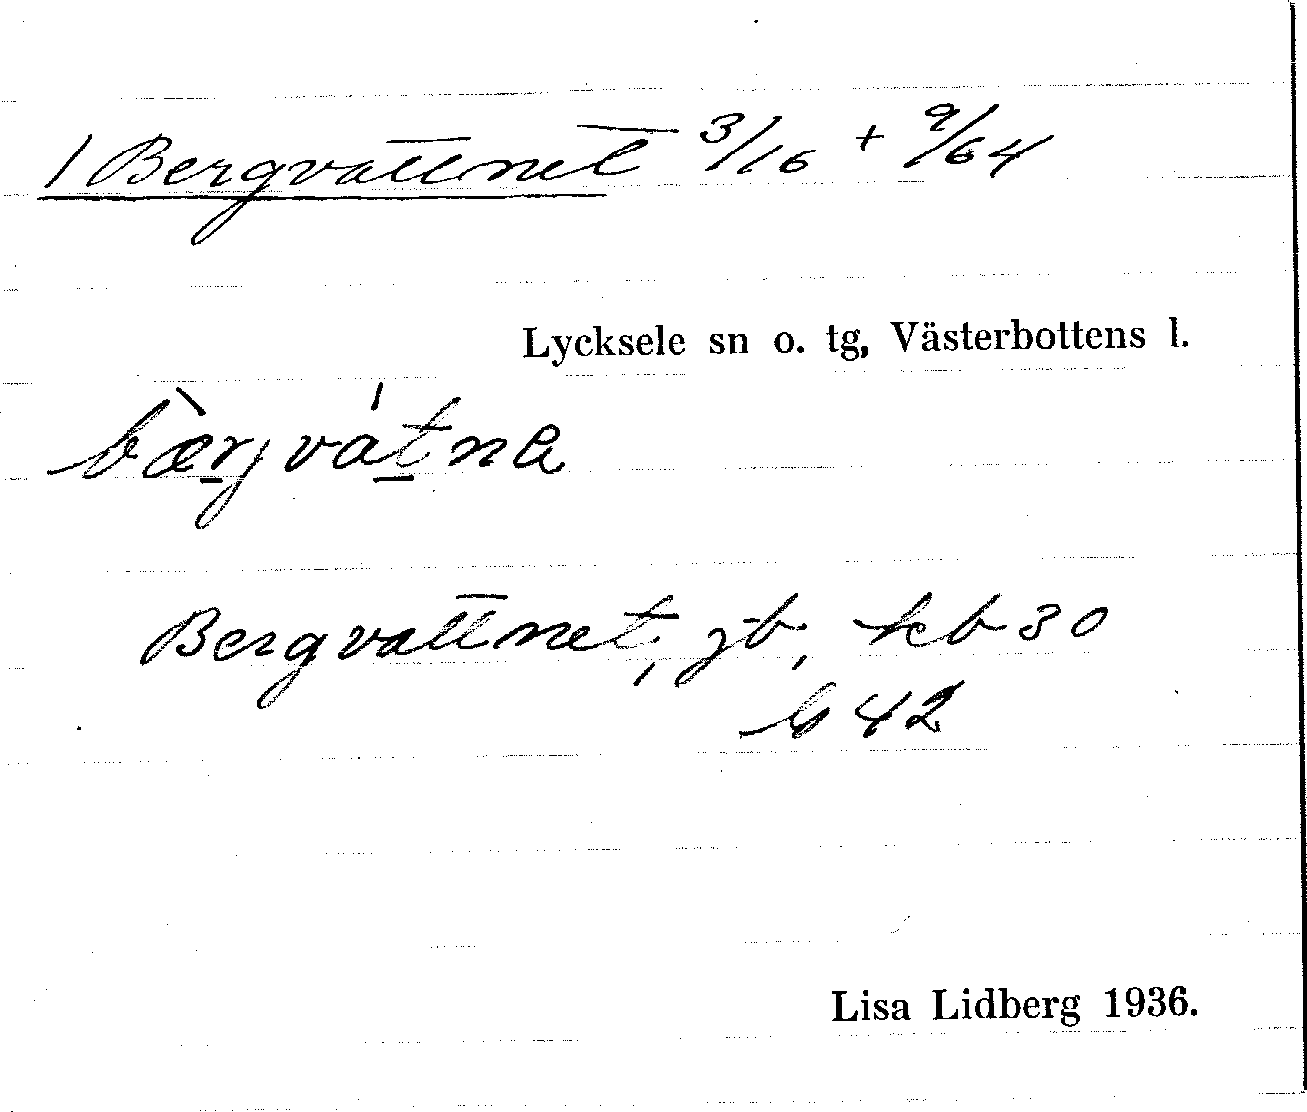 1 Bergvattnet 3/16 + 9/64
Lycksele sn o. tg, Västerbottens l.
bæ̀rjvát̠na
Bergvattnet, jb, kb 30
b 42
Lisa Lidberg 1936.